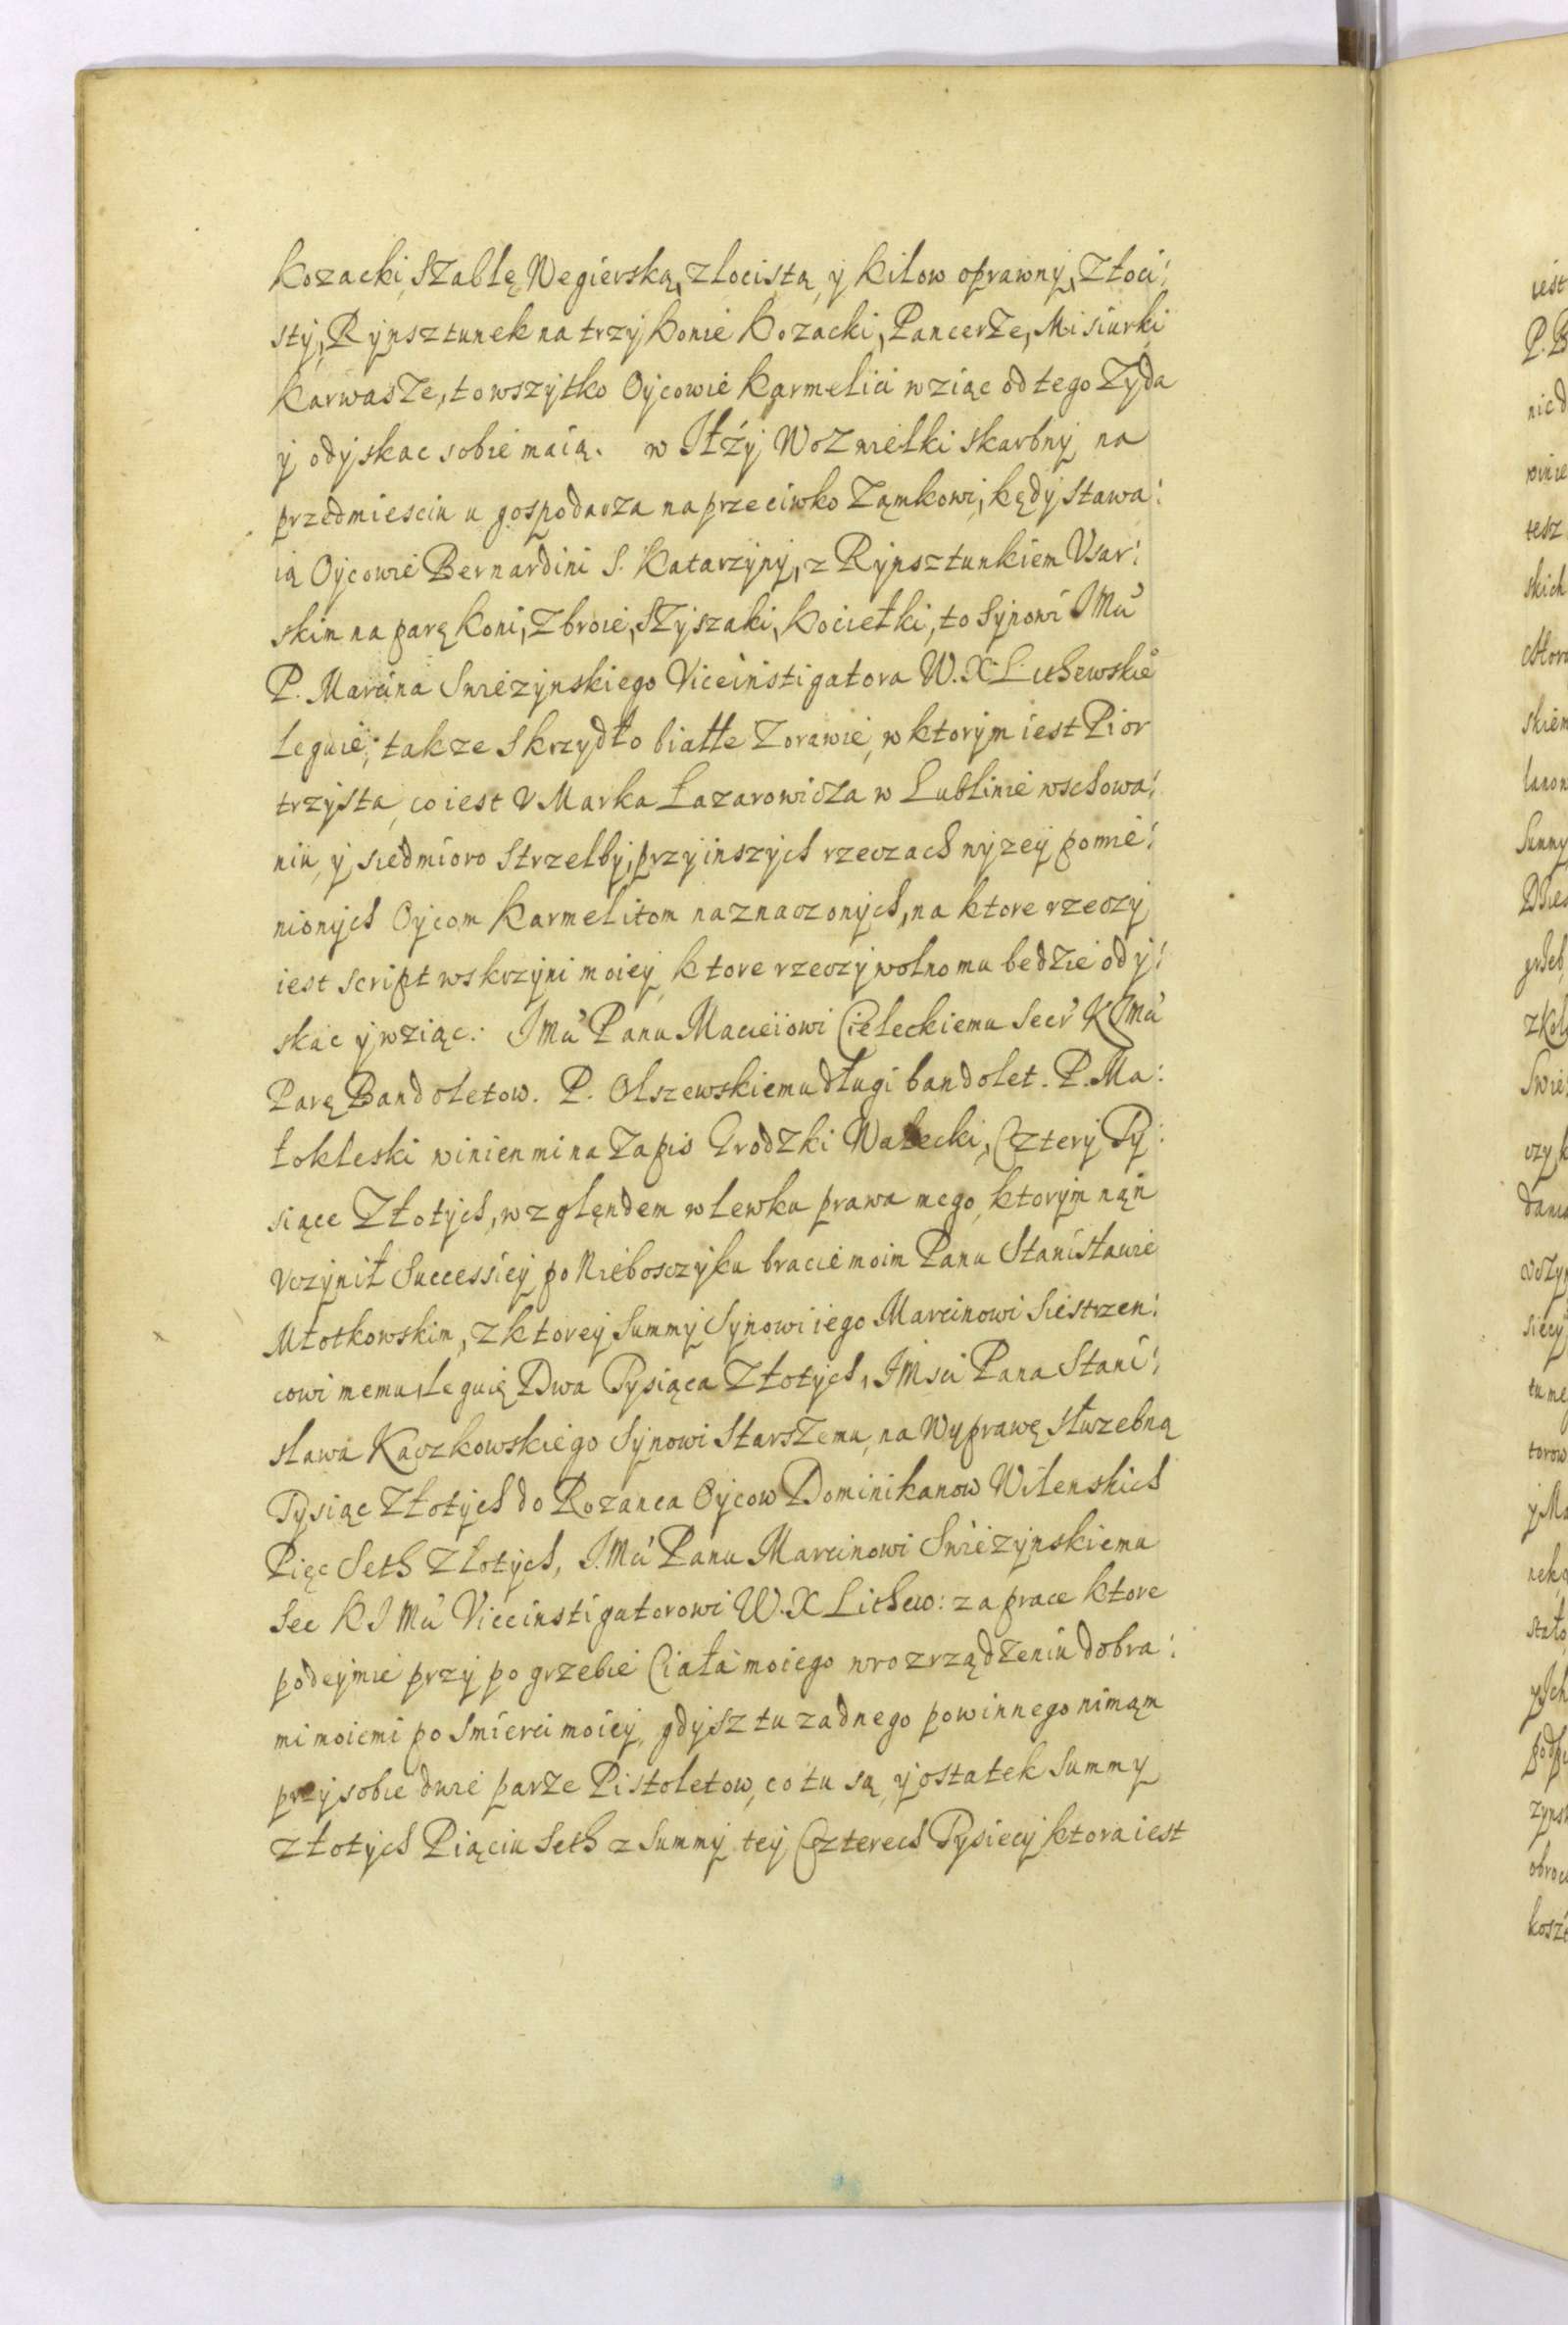 Kozacki, Szablę Węgierską, złocistą, y Kilow oprawny, Złoci:
sty, Rynsztunek na trzy Konie Kozacki, Pancerze, Misiurki
Karwasze, to wszytko Oycowie Karmelici wziąc od tego Zyda
y odyskac sobie maią. w Iłży Woz wielki skarbny na
przedmiesciu u gospodarza naprzeciwko Zamkowi, kędy stawa:
ią Oycowie Bernardini S. Katarzyny, z Rynsztunkiem Vsar:
skim na parę Koni, Zbroie, Szyszaki, Kociełki, to Synowi IMci
P. Marcina Snieżynskiego Viceinstigatora W. X Lithewskie
Leguię, takze Skrzydło białłe Zorawie, w ktorym iest Pior
trzysta, co iest V Marka Łazarowicza w Lublinie wschowa:
niu, y siedmioro Strzelby, przy inszych rzeczach wyzey pomie:
nionych Oycom Karmelitom naznaczonych, na ktore rzeczy
iest script w skrzyni moiey, ktore rzeczy wolno mu bedzie ody:
skac y wziąc: IMci Panu Macieiowi Cieleckiemu Secr KIMci
Parę Bandoletow. P. Olszewskiemu długi bandolet. P. Ma:
łokleski winien mi na Zapis Grodzki Wałecki, Cztery Ty:
siące Złotych, względem wlewku prawa mego, ktorym nań
Vczynił Successiey po Niebosczyku bracie moim Panu Stanisławie
Młotkowskim, z ktorey Summy Synowi iego Marcinowi Siestrzen:
cowi memu, leguię Dwa Tysiąca Złotych, IMsci Pana Stani:
sława Kaczkowskiego Synowi Starszemu, na Wyprawę służebną
Tysiąc Złotych do Rozanca Oycow Dominikanow Wilenskich
Pięc Seth Złotych, I.Mci Panu Marcinowi Snieżynskiemu
Sec K I Mci Viceinstigatorowi W.X Lithew: za prace ktore
podeymie przy pogrzebie Ciała moiego w rozrządzeniu dobra:
mi moiemi po Smierci moiey, gdysz tu zadnego powinnego nimąm
przy sobie dwie parze Pistoletow, co tu są, y ostatek Summy
złotych Piąciu Seth z Summy tey Czterech Tysiecy ktora iest